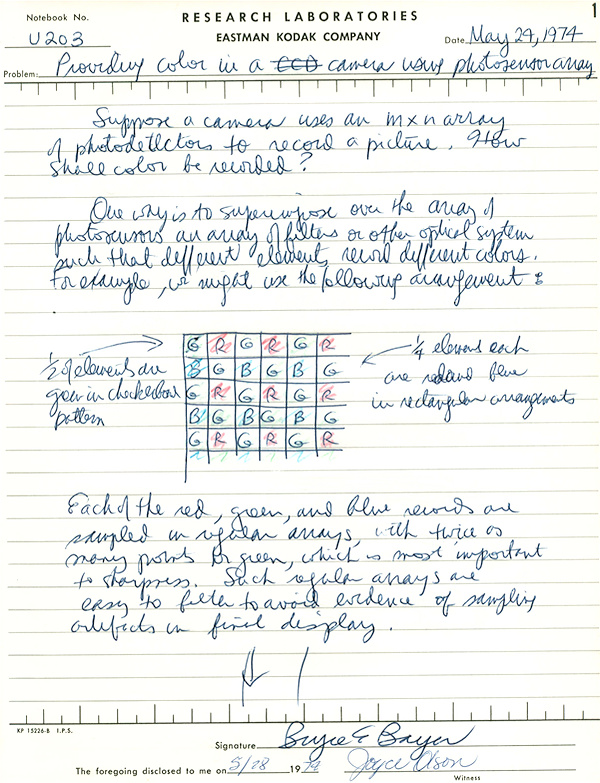 Notebook No.
U203
RESEARCH LABORATORIES
EASTMAN KODAK COMPANY
1
Date May 24, 1974
Problem: Providing color in a CCD camera using photosensor array
Suppose a camera uses an m x n array
of photodetectors to record a picture. How
shall color be recorded?
One way is to superimpose over the array of
photosensors an array of filters or other optical system
such that different elements record different colors.
For example, we might use the following arrangement:
1/2 of elements are
green in checkerboard
pattern
G R G R G R
B G B G B G
G R G R G R
B G B G B G
G R G R G R
1/4 elements each
are red and blue
in rectangular arrangements
Each of the red, green, and blue records are
sampled in regular arrays, with twice as
many points for green, which is most important
to sharpness. Such regular arrays are
easy to filter to avoid evidence of sampling
artifacts in final display.
KP 15226-B I.P.S.
Signature Bryce E Bayer
The foregoing disclosed to me on 5/28 1974 Joyce Olson
Witness